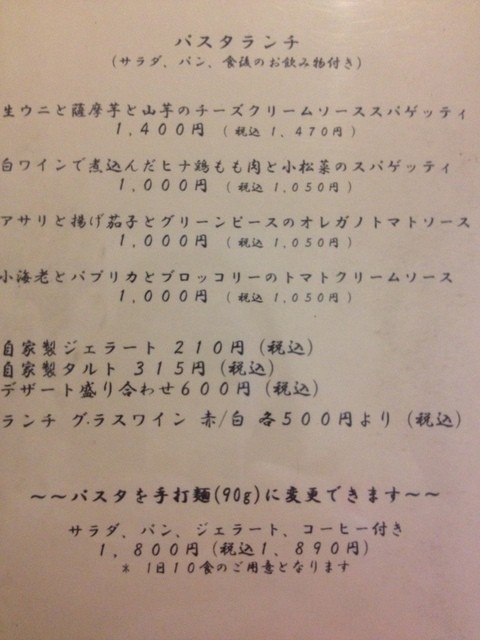 パスタランチ
(サラダ、パン、食後のお飲み物付き)
生ウニと薩摩芋と山芋のチーズクリームソーススパゲッティ
1,400円 (税込 1,470円)
白ワインで煮込んだヒナ鶏もも肉と小松菜のスパゲッティ
1,000円 (税込 1,050円)
アサリと揚げ茄子とグリーンピースのオレガノトマトソース
1,000円 (税込 1,050円)
小海老とパプリカとブロッコリーのトマトクリームソース
1,000円 (税込 1,050円)
自家製ジェラート 210円 (税込)
自家製タルト 315円 (税込)
デザート盛り合わせ600円 (税込)
ランチ グラスワイン 赤/白 各500円より (税込)
~~パスタを手打麺(90g)に変更できます~~
サラダ、パン、ジェラート、コーヒー付き
1,800円 (税込1,890円)
* 1日10食のご用意となります